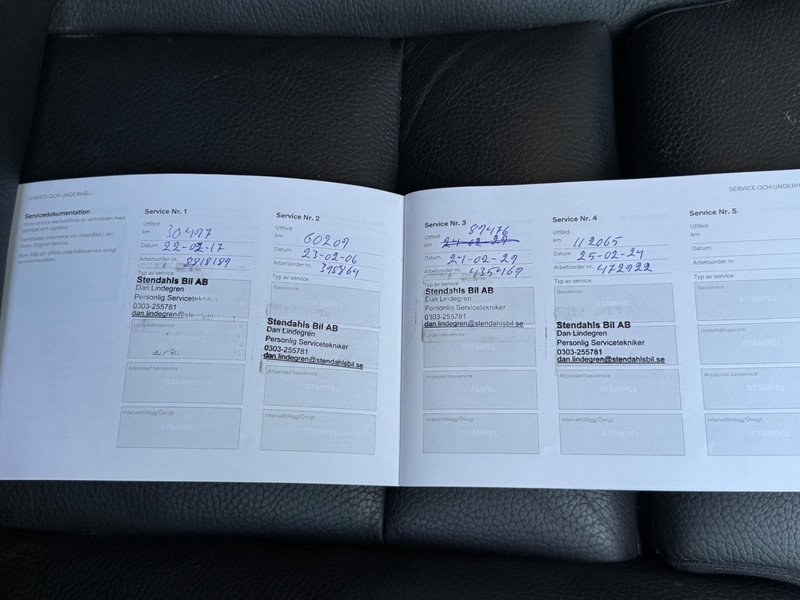 SERVICE OCH UNDERHÅLL
Servicedokumentation
Service Nr. 1
Utförd
km 30477
Datum 22-02-17
Arbetsorder nr.
Typ av service
Stendahls Bil AB
Dan Lindegren
Personlig Servicetekniker
0303-255781
dan.lindegren@
Underhållsservice
Anpassad basservice
STÄMPEL
Intervalltillägg/Övrigt
STÄMPEL
Service Nr. 2
Utförd
km 60207
Datum 23-02-06
Arbetsorder nr. 398864
Typ av service
Basservice
Stendahls Bil AB
Dan Lindegren
Personlig Servicetekniker
0303-255781
dan.lindegren@stendahlsbil.se
Anpassad basservice
STÄMPEL
Intervalltillägg/Övrigt
STÄMPEL
Service Nr. 3
Utförd 87476
km
Datum 24-02-27
Arbetsorder nr. 435467
Typ av service
Stendahls Bil AB
Dan Lindegren
Personlig Servicetekniker
0303-255781
dan.lindegren@stendahlsbil.se
Underhållsservice
STÄMPEL
Anpassad basservice
STÄMPEL
Intervalltillägg/Övrigt
STÄMPEL
Service Nr. 4
Utförd
km 112065
Datum 25-02-24
Arbetsorder nr. 472922
Typ av service
Basservice
STÄMPEL
Stendahls Bil AB
Dan Lindegren
Personlig Servicetekniker
0303-255781
dan.lindegren@stendahlsbil.se
Anpassad basservice
STÄMPEL
Intervalltillägg/Övrigt
STÄMPEL
SERVICE OCH UNDERH
Service Nr. 5
Utförd
km
Datum
Arbetsorder nr.
Typ av service
Basservice
STÄMPEL
Underhållsservice
STÄMPEL
Anpassad basservice
STÄMPEL
Intervalltillägg/Övrigt
STÄMPEL